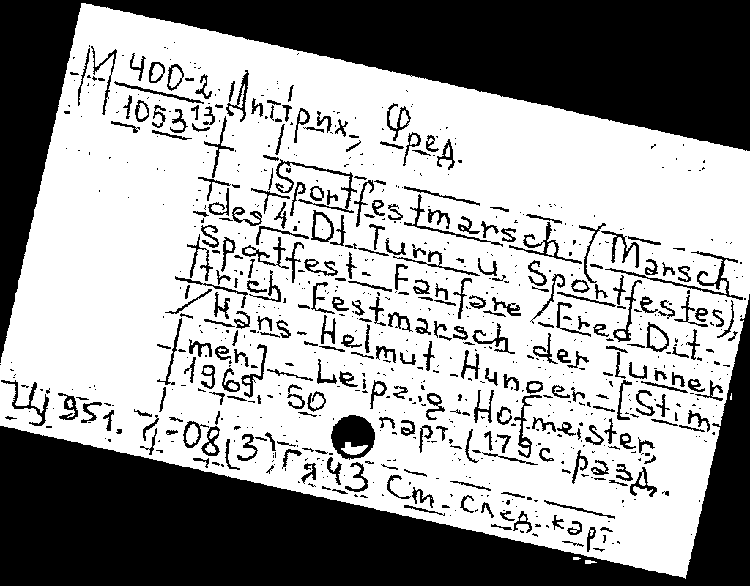 М 400-2
1053 13
Диттрих, Фред.
Sportfestmarsch: (Marsch
des 4. Dt. Turn- u. Sportfestes),
Sportfest-Fanfare / Fred Dit-
trich. Festmarsch der Turner
/ Hans-Helmut Hunger.- [Stim-
men]. - Leipzig: Hofmeister,
1969. - 50 парт. (179с. разд.
Ц 951. 7-08(3) Гя43 См. след. карт.